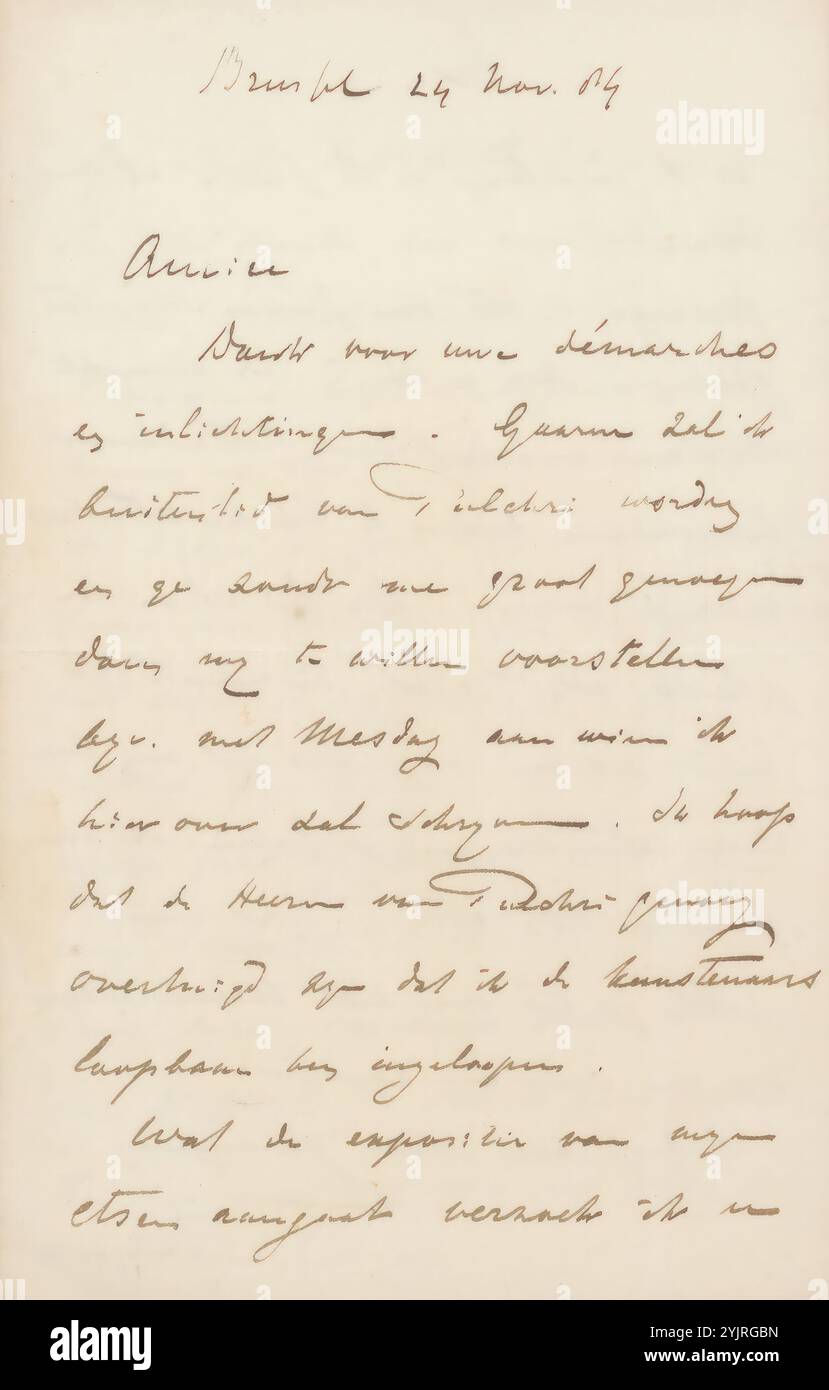 Brussel 24 Nov. 84
Amice
Dank voor uwe démarches
en inlichtingen. Gaarne zal ik
buitenlid van Pulchri worden
en ge zoudt me groot genoegen
doen my te willen voorstellen
bijv. met Mesdag aan wien ik
hier over zal schryven. Ik hoop
dat de Heeren van Pulchri genoeg
overtuigd zyn dat ik de kunstenaars
loopbaan ben ingeloopen.
Wat de expositie van myne
etsen aangaat verzoek ik u
alamy
Image ID: 2YJRGBN
www.alamy.com